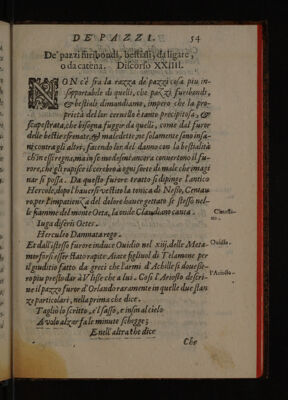 DE PAZZI. 54
De' pazzi furibondi, bestiali, da ligare,
o da catena. Discorso XXIIII.
NON c'è fra la razza de' pazzi cosa piu in-
sopportabile di quelli, che pazzi furibondi,
& bestiali dimandiamo, impero che la pro-
prietà del lor ceruello è tanto precipitosa, &
scapestrata, che bisogna fuggir da quelle, come dal furor
delle bestie sfrenate, & maledette, ne solamente sono insa-
ni contra gli altri, facendo lor del danno con la bestialità
ch'in essi regna, ma in se medesmi ancora conuertono il fu-
rore, che gli rapisce il ceruello à ogni sorte di male che imagi
nar si possa. Da questo furore tratto si dipinge l'antico
Hercole, doppo l'hauer si vestito la tonica di Nesso, Centau
ro per l'impatienza del dolore hauer gettato se stesso nel-
le fiamme del monte Oeta, la onde Claudiano canta.
Claudia-
no.
Iuga diseris Oetes.
Herculeo Damnata rogo.
Et dall'istesso furore induce Ouidio nel xiij. delle Meta-
morfosi esser stato rapito Aiace figliuol di Telamone per
Ouidio.
il giuditio fatto da greci che l'armi d'Achille si douesse-
ro piu presto dar à Vlisse che a lui. Cosi l'Ariosto descri-
L'Ariosto.
ue il pazzo furor d'Orlando raramente in quelle due stan
ze particolari, nella prima che dice.
Tagliò lo scritto, e'l sasso, e insin al cielo
A volo alzar fa le minute schegge;
E nell'altra che dice
Che